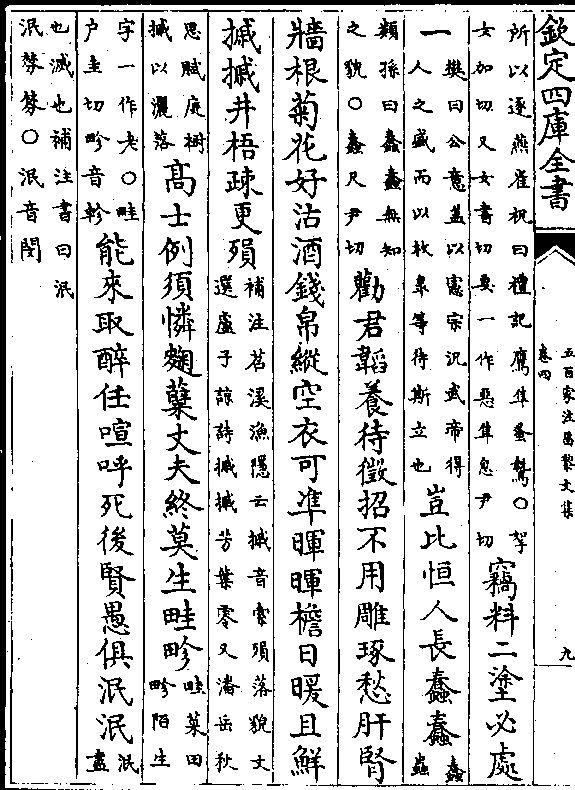 欽定四庫全書
五百家注昌黎文集
卷四
九
所以逐燕雀祝曰禮記鷹隼蚤鷙○挐
女加切又女書切要一作惡隼息尹切
竊料二塗必處
一
樊曰公意蓋以憲宗況武帝得
人之盛而以枚皋等待斯立也
豈比恒人長蠢蠢
蠢
蟲
類孫曰蠢蠢無知
之貌○蠢尺尹切
勸君韜養待徵招不用雕琢愁肝腎
牆根菊花好沽酒錢帛縱空衣可準暉暉檐日暖且鮮
摵摵井梧疎更殞
補注苕溪漁隱云摵音索殞落貌文
選盧子諒詩摵摵芳葉零又潘岳秋
思賦庭樹
摵以灑落
高士例須憐麴蘖丈夫終莫生畦畛
畦菜田
畛陌生
字一作老○畦
户圭切畛音軫
能來取醉任喧呼死後賢愚俱泯泯
泯
盡
也滅也補注書曰泯
泯棼棼○泯音閔